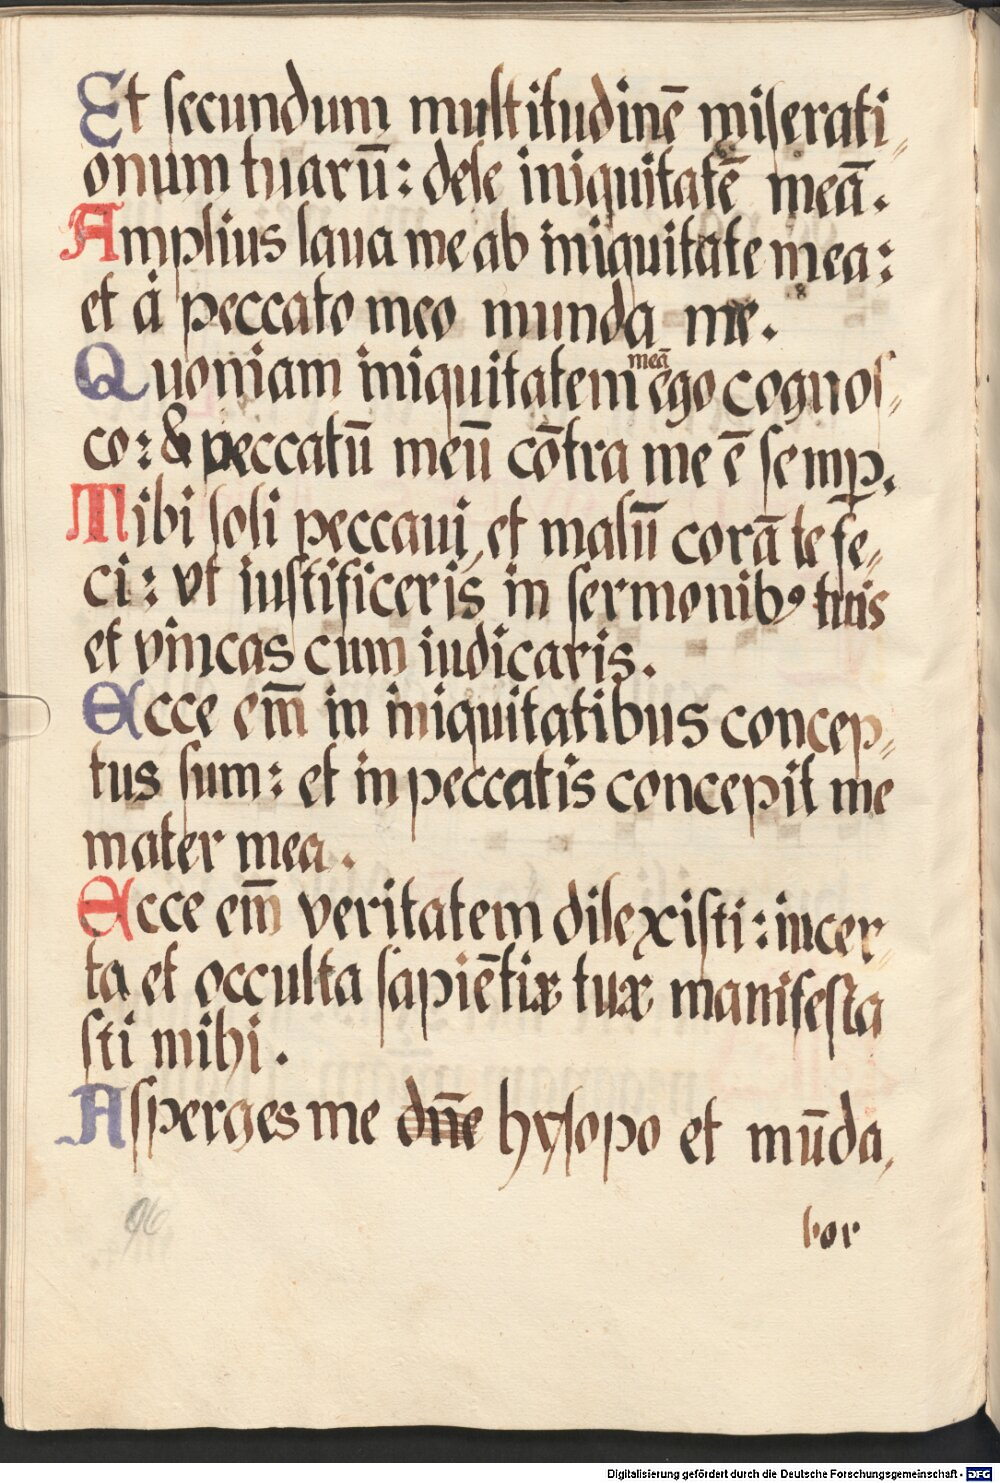 Et secundum multitudinē miserati,,
onum tuarū: dele iniquitatē meā.
Amplius laua me ab iniquitate mea:
et à peccato meo munda me.
Quoniam iniquitatem meā ego cognos,,
co: & peccatū meū cōtra me ē semp̲.
Tibi soli peccaui, et malū corā te fe,,
ci: vt iustificeris in sermonibꝰ tuis
et vincas cum iudicaris.
Ecce em̄ in iniquitatibus concep,,
tus sum: et in peccatis concepit me
mater mea.
Ecce em̄ veritatem dilexisti: incer,,
ta et occulta sapiētiæ tuæ manifesta
sti mihi.
Asperges me dn̄e hysopo et mūda,,
bor
96
Digitalisierung gefördert durch die Deutsche Forschungsgemeinschaft - DFG